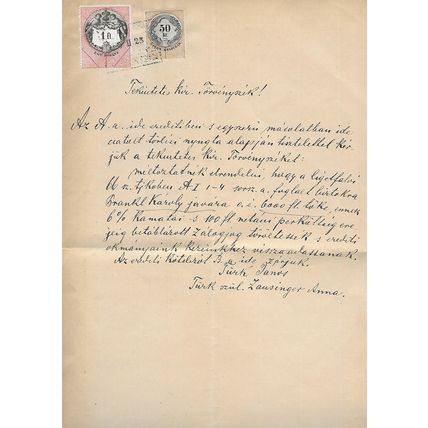 1 ft
50 kr
II 25
Tekintetes Kir. Törvényszék!
Az A. a. ide eredetiben s egyszerű másolatban ide
csatolt törlési nyugta alapján tisztelettel kér-
jük a tekintetes Kir. Törvényszéket:
méltóztatnék elrendelni, hogy a ligetfalui
sz. tjkvben A I 1-4 sorsz. a. foglalt birtokra
Brankl Károly javára o. é. 6000 ft tőke, ennek
6% kamatai s 100 ft netáni perköltség ere-
jéig bekeblezett zálogjog töröltessék s eredeti
okmányaink kezeinkhez visszaadassanak.
Az eredeti kötelező B. a. ide zárjuk.
Türk János
Türk szül. Zausinger Anna.